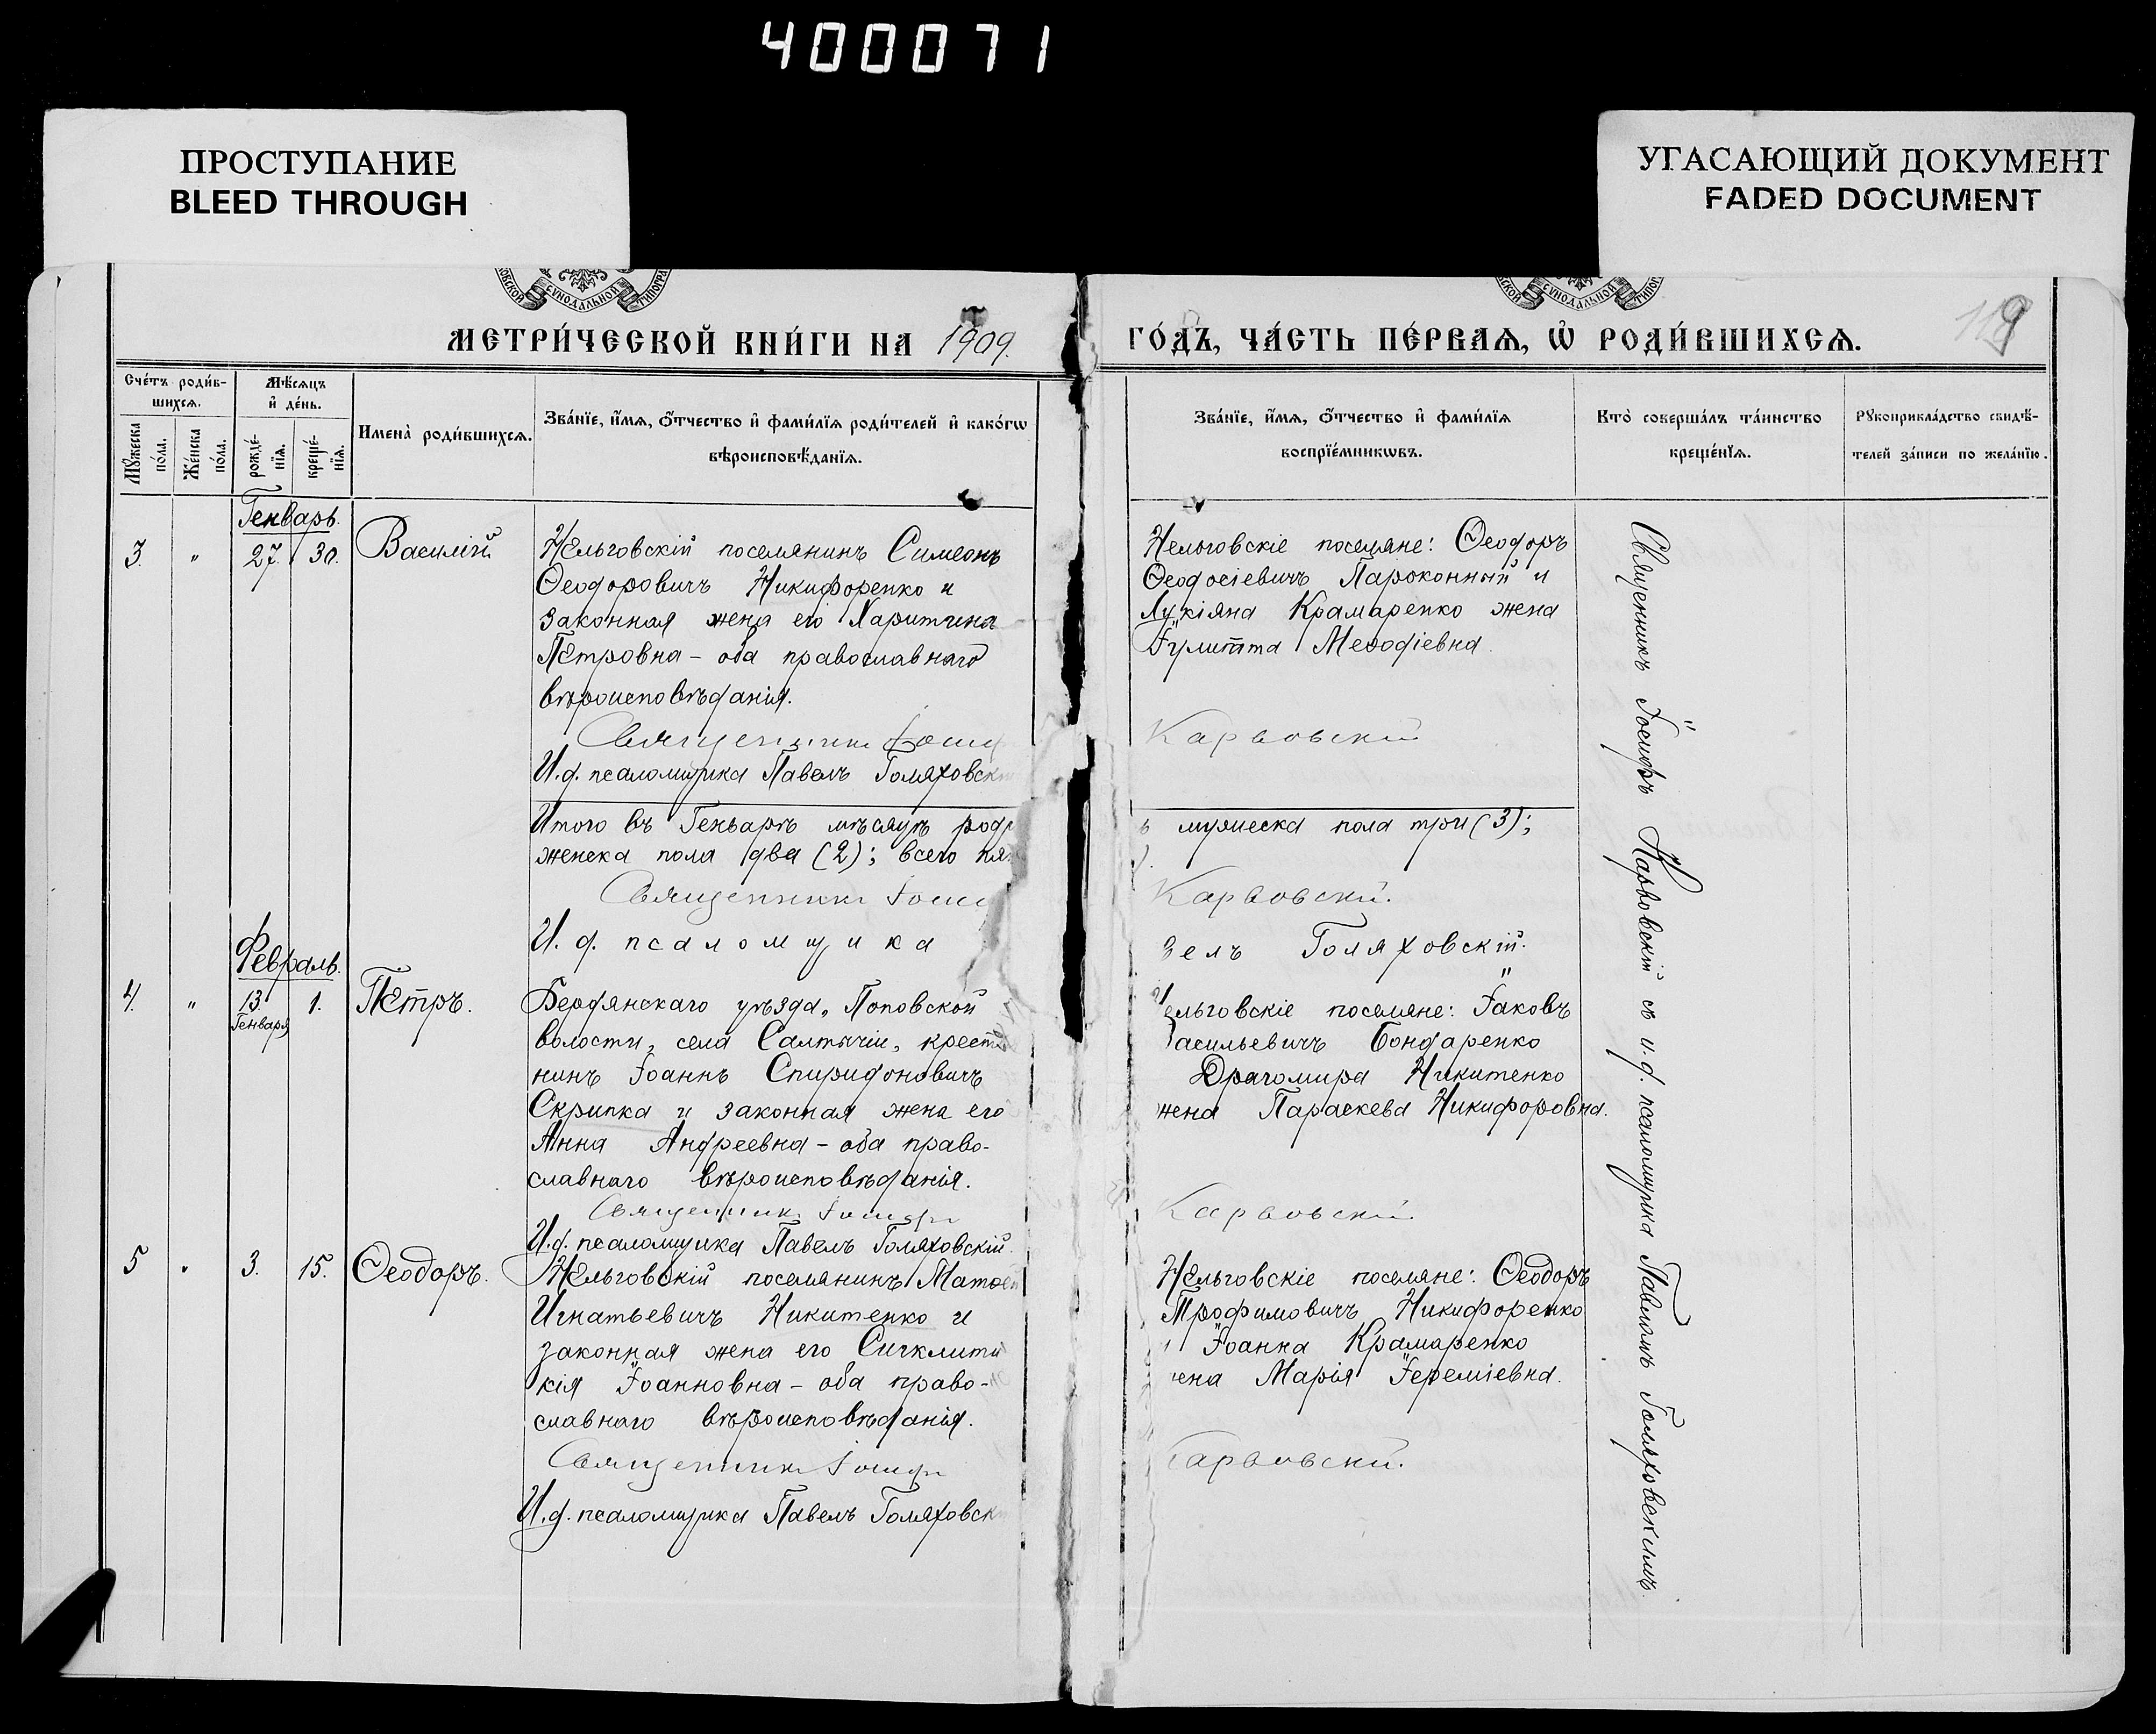 400071
ПРОСТУПАНИЕ
BLEED THROUGH
УГАСАЮЩИЙ ДОКУМЕНТ
FADED DOCUMENT
СѴНОДАЛЬНОЙ
СѴНОДАЛЬНОЙ
МЕТРИ́ЧЕСКОЙ КНИ́ГИ НА 1909.
ГО́ДЪ, ЧА́СТЬ ПЕ́РВАѦ, Ѡ҆ РОДИ́ВШИХСѦ.
119
Сче́тъ роди́в-
шихсѧ.
Мѣ́сѧцъ
и҆ де́нь.
Мꙋ́жеска
по́ла.
Же́нска
по́ла.
рожде́-
нїѧ.
креще́-
нїѧ.
Имена̀ роди́вшихсѧ.
Зва́нїе, и҆́мѧ, ѻ҆́тчество и҆ фами́лїѧ роди́телей и҆ како́гѡ
вѣроисповѣ́данїѧ.
Зва́нїе, и҆́мѧ, ѻ҆́тчество и҆ фами́лїѧ
воспрїе́мникѡвъ.
Кто̀ соверша́лъ та́инство
креще́нїѧ.
Рꙋкоприкла́дство свидѣ́-
телей за́писи по жела́нїю.
Генварь.
3. " 27. 30. Василій.
Нельговскій поселянинъ Симеонъ
Ѳеодоровичъ Никифоренко и
законная жена его Харитина
Петровна – оба православнаго
вѣроисповѣданія.
Священникъ Іоси
И.д. псаломщика Павелъ Голяховск
Нельговскіе поселяне: Ѳеодоръ
Ѳеодосіевичъ Пароконный и
Лукіяна Крамаренко жена
Іулитта Меѳодіевна.
Карвовскій
Итого въ Генварѣ мѣсяцѣ род
женска пола два (2); всего пя
Священникъ Іоси
И. д. псаломщика
мужеска пола три (3);
Карвовскій.
велъ Голяховскій.
Февраль.
4. " 13 Генваря 1. Петръ.
Бердянскаго уѣзда, Поповской
волости, села Салтычіи, крест
нинъ Іоаннъ Спиридоновичъ
Скрипка и законная жена его
Анна Андреевна – оба право-
славнаго вѣроисповѣданія.
Священникъ Іосифъ
И.д. псаломщика Павелъ Голяховскій.
ельговскіе поселяне: Іаковъ
асильевичъ Бондаренко
Драгомира Никитенко
жена Параскева Никифоровна.
Карвовскій
5 " 3. 15. Ѳеодоръ.
Нельговскій поселянинъ Матѳей
Игнатьевичъ Никитенко и
законная жена его Сигклити
кія Іоанновна – оба право-
славнаго вѣроисповѣданія.
Священникъ Іосифъ
И.д. псаломщика Павелъ Голяховск
Нельговскіе поселяне: Ѳеодоръ
Трофимовичъ Никифоренко
и Іоанна Крамаренко
ена Марія Іереміевна.
Карвовскій.
Священникъ Іосифъ Карвовскій съ и.д. псаломщика Павломъ Голяховскимъ.